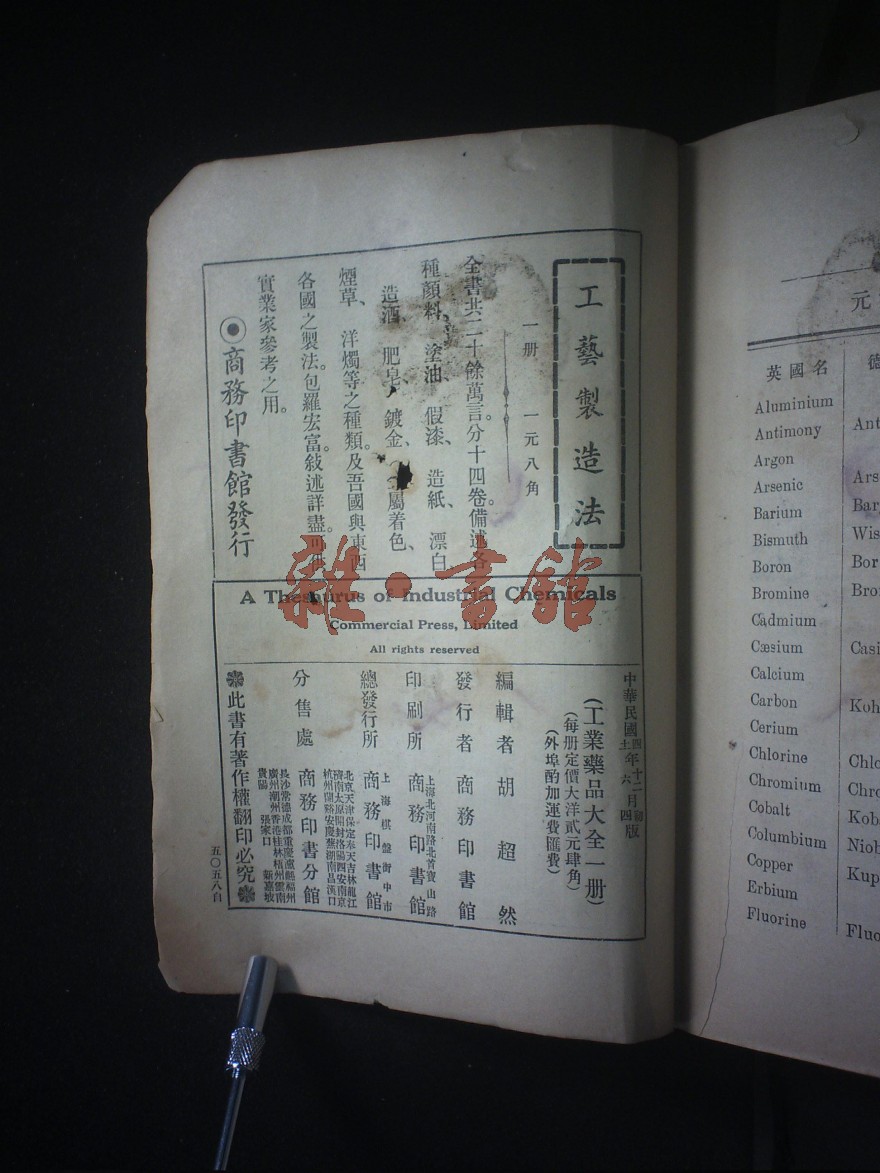 工藝製造法
一册 一元八角
全書共二十餘萬言。分十四卷。備述各
種顏料、塗油、假漆、造紙、漂白、
造酒、肥皂、鍍金、屬着色、
煙草、洋燭等之種類。及吾國與東西
各國之製法。包羅宏富。敍述詳盡。可供
實業家參考之用。
商務印書館發行
雜·書館
A Thesaurus of Industrial Chemicals
Commercial Press, Limited
All rights reserved
中華民國四年十二月初版
中華民國十六年 月四版
(工業藥品大全一册)
(每册定價大洋貳元肆角)
(外埠酌加運費匯費)
編輯者 胡超然
發行者 商務印書館
印刷所 上海北河南路北首寶山路 商務印書館
總發行所 上海棋盤街中市 商務印書館
分售處 商務印書分館
北京天津保定奉天吉林龍江
濟南太原開封洛陽西安南京
杭州蘭谿安慶蕪湖南昌漢口
長沙常德成都重慶瀘縣福州
廣州潮州香港桂林梧州雲南
貴陽 張家口 新嘉坡
此書有著作權翻印必究
五〇五八自
元
英國名 德
Aluminium
Antimony Ant
Argon
Arsenic Ars
Barium Bar
Bismuth Wis
Boron Bor
Bromine Bro
Cadmium
Cæsium Casi
Calcium
Carbon Koh
Cerium
Chlorine Chlo
Chromium Chro
Cobalt Kob
Columbium Niob
Copper Kup
Erbium
Fluorine Fluo